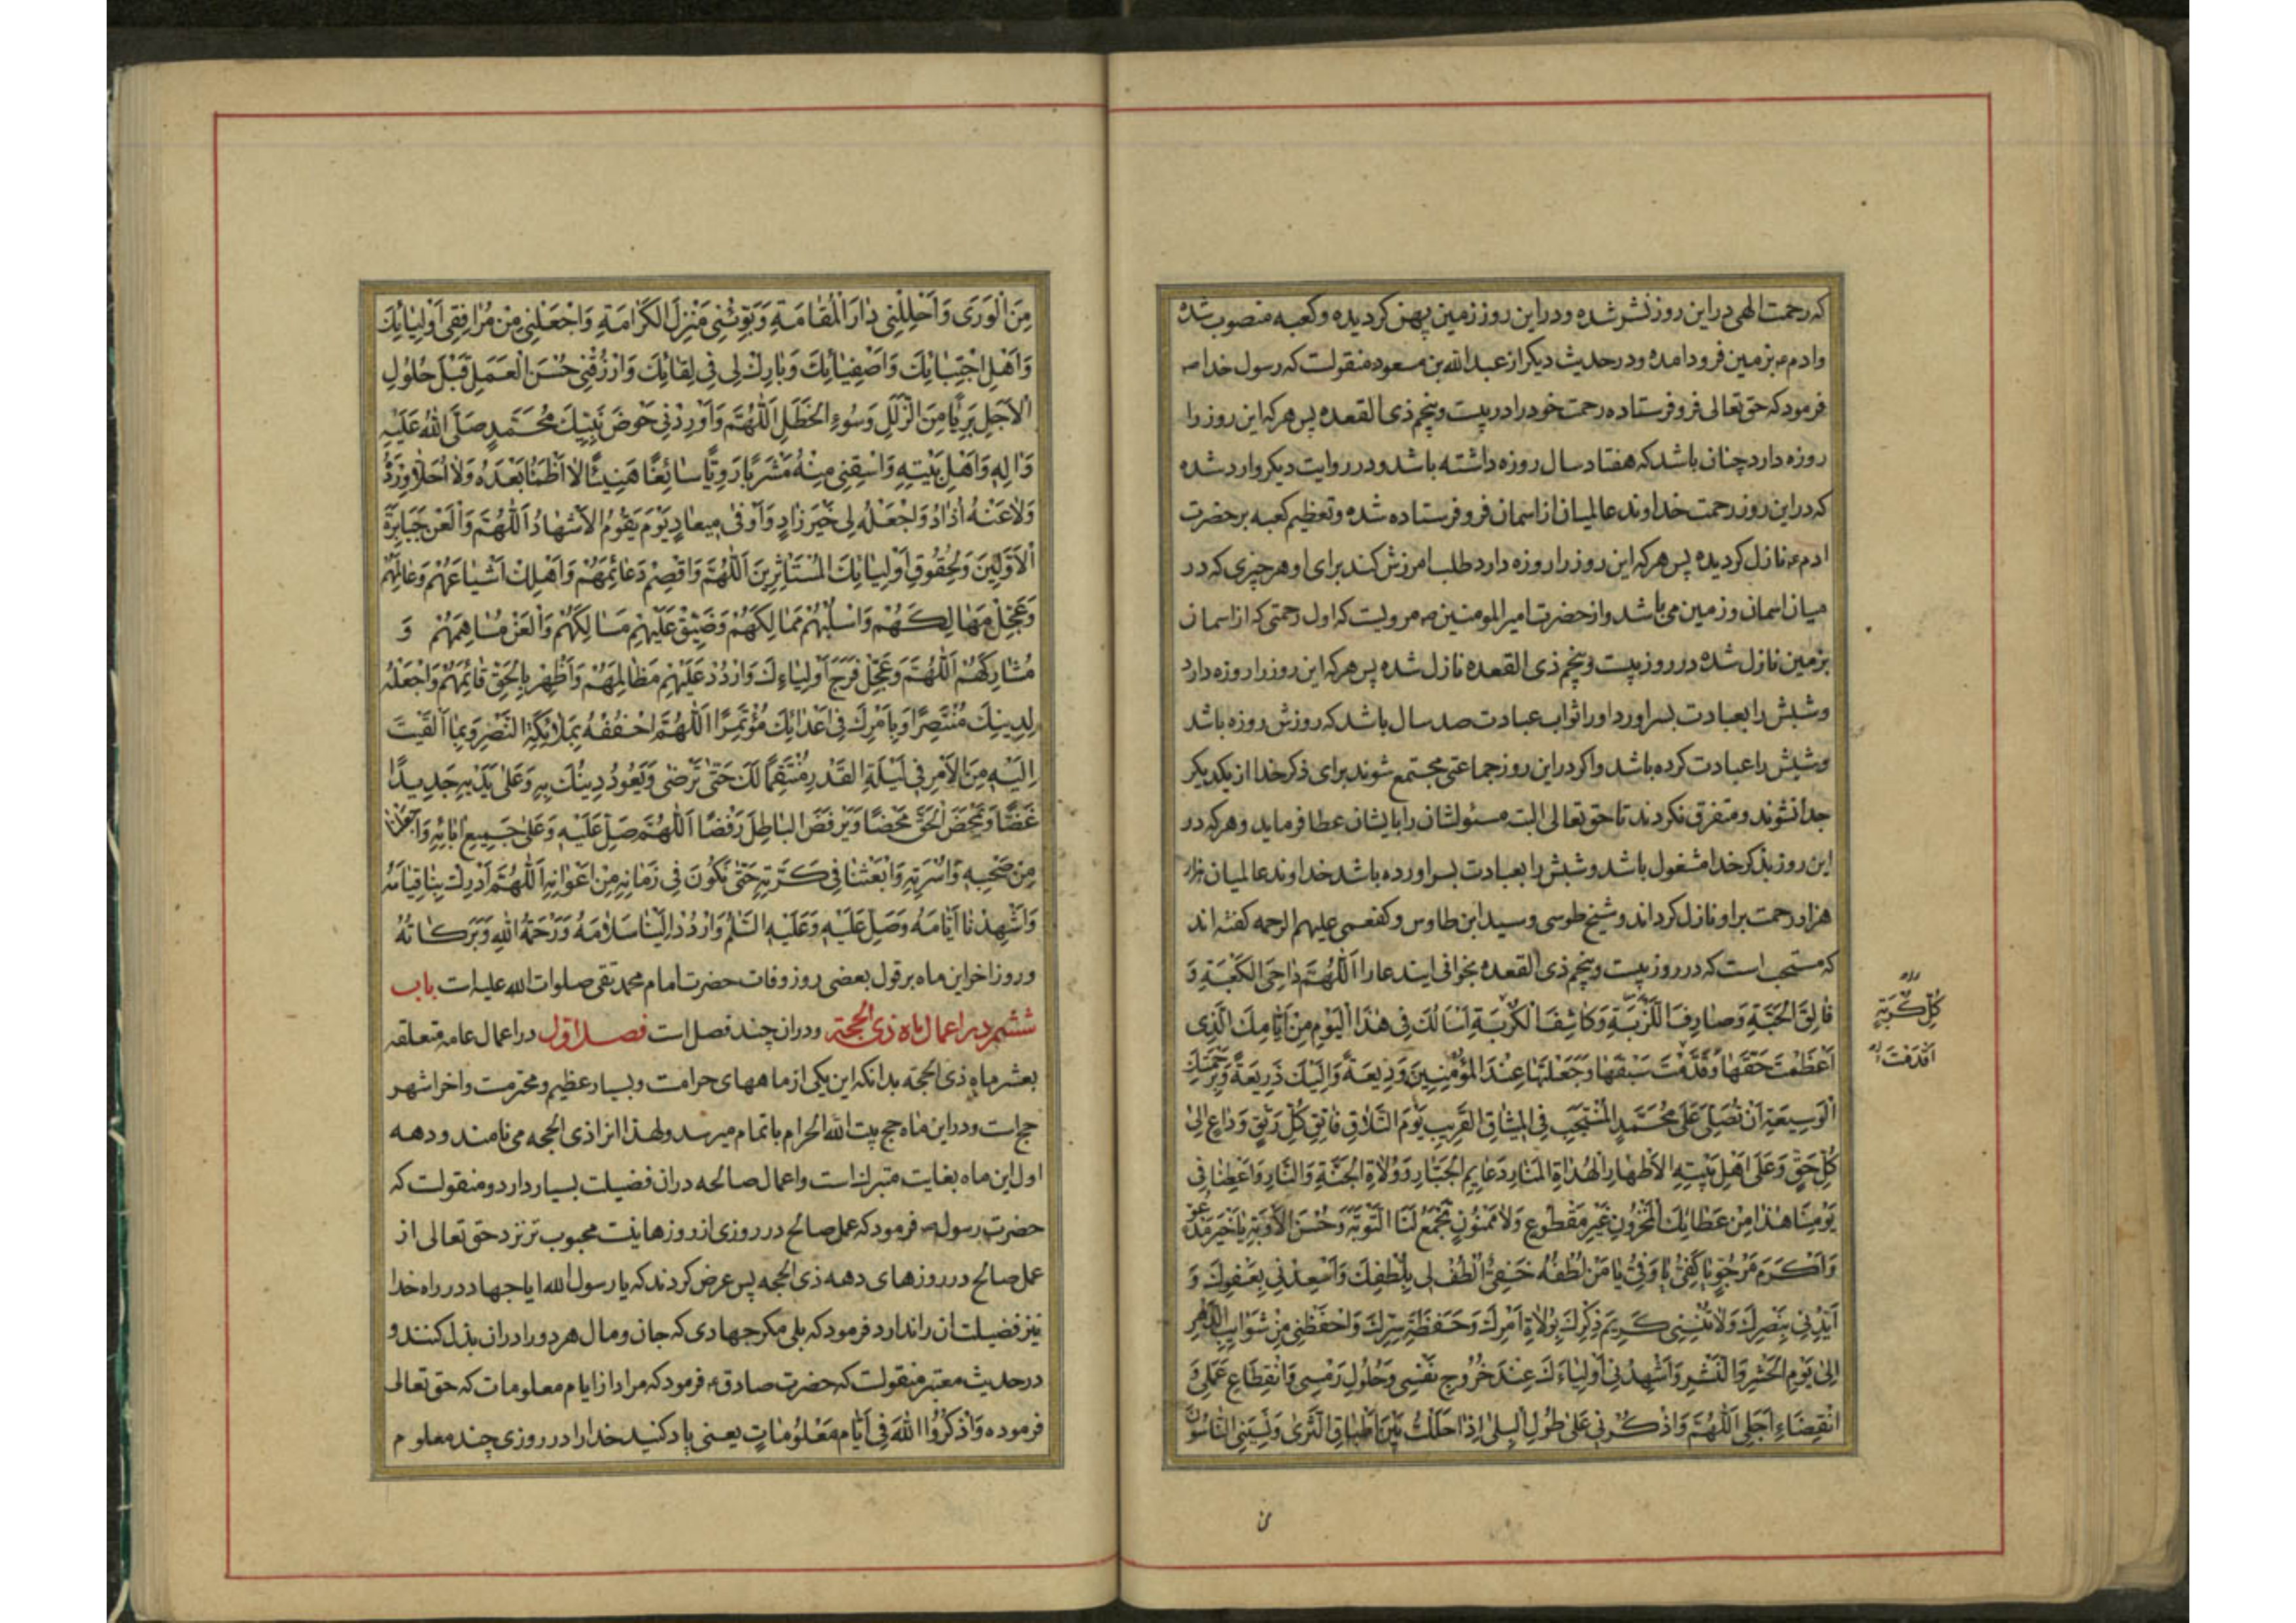 که رحمت الهی در این روز نشر شده و در این روز زمین پهن کردیده و کعبه منصوب شده
و ادم ع بزمین فرود امده و در حدیث دیکر از عبد الله بن مسعود منقولست که رسول خدا ص
فرمود که حق تعالی فرو فرستاده رحمت خود را در بیست و پنجم ذی القعده پس هر که این روز را
روزه دارد چنان باشد که هفتاد سال روزه داشته باشد و در روایت دیکر وارد شده
که در این روز رحمت خداوند عالمیان از اسمان فرو فرستاده شده و تعظیم کعبه بر حضرت
ادم ع نازل کردیده پس هر که این روز را روزه دارد طلب امرزش کند برای او هر چیزی که در
میان اسمان و زمین می باشد و از حضرت امیر المومنین ص مرویست که اول رحمتی که از اسمان
بزمین نازل شده در روز بیست و پنجم ذی القعده نازل شده پس هر که این روز را روزه دارد
و شبش را بعبادت بسر اورد او را ثواب عبادت صد سال باشد که روزش روزه باشد
و شبش را عبادت کرده باشد و اکر در این روز جماعتی مجتمع شوند برای ذکر خدا از یکدیکر
جدا نشوند و متفرق نکردند تا حق تعالی البته مسئولشان را بایشان عطا فرماید و هر که در
این روز بذکر خدا مشغول باشد و شبش را بعبادت بسر اورده باشد خداوند عالمیان هزار
هزار رحمت بر او نازل کرداند و شیخ طوسی و سید ابن طاوس و کفعمی علیهم الرحمه کفته اند
که مستحب است که در روز بیست و پنجم ذی القعده بخوانی ایندعا را اَللّٰهُمَّ دٰاحِیَ الْکَعْبَةِ وَ
فٰالِقَ الْحَبَّةِ وَصٰارِفَ اللَّزْبَةِ وَکٰاشِفَ الْکُرْبَةِ اَسْاَلُکَ فِی هٰذَا الْیَوْمِ مِنْ اَیّٰامِکَ الَّذِی
کُلِّ کُرْبَةٍ
اَعْظَمْتَ حَقَّهٰا وَقَدَّمْتَ سَبْقَهٰا وَجَعَلْتَهٰا عِنْدَ الْمُؤْمِنِینَ وَدِیعَةً وَاِلَیْکَ ذَرِیعَةً وَبِرَحْمَتِکَ
اَقْدَمْتَ
الْوَسِیعَةِ اَنْ تُصَلِّیَ عَلٰی مُحَمَّدٍ الْمُنْتَجَبِ فِی الْمِیثٰاقِ الْقَرِیبِ یَوْمَ التَّلٰاقِ فٰاتِقِ کُلِّ رَتْقٍ وَدٰاعٍ اِلٰی
کُلِّ حَقٍّ وَعَلٰی اَهْلِ بَیْتِهِ الْاَطْهٰارِ الْهُدٰاةِ الْمَنٰارِ دَعٰایِمِ الْجَبّٰارِ وَوُلٰاةِ الْجَنَّةِ وَالنّٰارِ وَاَعْطِنٰا فِی
یَوْمِنٰا هٰذٰا مِنْ عَطٰائِکَ الْمَخْزُونِ غَیْرِ مَقْطُوعٍ وَلٰا مَمْنُونٍ تَجْمَعُ لَنَا التَّوْبَةَ وَحُسْنَ الْاَوْبَةِ یٰا خَیْرَ مَدْعُوٍّ
وَاَکْرَمَ مَرْجُوٍّ یٰا کَفِیُّ یٰا وَفِیُّ یٰا مَنْ لُطْفُهُ خَفِیٌّ اُلْطُفْ لِی بِلُطْفِکَ وَاَسْعِدْنِی بِعَفْوِکَ وَ
اَیِّدْنِی بِنَصْرِکَ وَلٰا تُنْسِنِی کَرِیمَ ذِکْرِکَ بِوُلٰاةِ اَمْرِکَ وَحَفَظَةِ سِرِّکَ وَاحْفَظْنِی مِنْ شَوٰایِبِ الدَّهْرِ
اِلٰی یَوْمِ الْحَشْرِ وَالنَّشْرِ وَاَشْهِدْنِی اَوْلِیٰاءَکَ عِنْدَ خُرُوجِ نَفْسِی وَحُلُولِ رَمْسِی وَانْقِطٰاعِ عَمَلِی وَ
انْقِضٰاءِ اَجَلِی اَللّٰهُمَّ وَاذْکُرْنِی عَلٰی طُولِ الْبِلٰی اِذٰا حَلَلْتُ بَیْنَ اَطْبٰاقِ الثَّرٰی وَنَسِیَنِی النّٰاسُونَ
مِنَ الْوَرٰی وَاَحْلِلْنِی دٰارَ الْمُقٰامَةِ وَبَوِّئْنِی مَنْزِلَ الْکَرٰامَةِ وَاجْعَلْنِی مِنْ مُرٰافِقِی اَوْلِیٰائِکَ
وَاَهْلِ اجْتِبٰائِکَ وَاَصْفِیٰائِکَ وَبٰارِکْ لِی فِی لِقٰائِکَ وَارْزُقْنِی حُسْنَ الْعَمَلِ قَبْلَ حُلُولِ
الْاَجَلِ بَرِیًّا مِنَ الزَّلَلِ وَسُوءِ الْخَطَلِ اَللّٰهُمَّ وَاَوْرِدْنِی حَوْضَ نَبِیِّکَ مُحَمَّدٍ صَلَّی اللّٰهُ عَلَیْهِ
وَاٰلِهِ وَاَهْلِ بَیْتِهِ وَاسْقِنِی مِنْهُ مَشْرَبًا رَوِیًّا سٰائِغًا هَنِیئًا لٰا اَظْمَأُ بَعْدَهُ وَلٰا اُحَلَّأُ وِرْدَهُ
وَلٰا عَنْهُ اُذٰادُ وَاجْعَلْهُ لِی خَیْرَ زٰادٍ وَاَوْفٰی مِیعٰادٍ یَوْمَ یَقُومُ الْاَشْهٰادُ اَللّٰهُمَّ وَالْعَنْ جَبٰابِرَةَ
الْاَوَّلِینَ وَلِحُقُوقِ اَوْلِیٰائِکَ الْمُسْتَاْثِرِینَ اَللّٰهُمَّ وَاقْصِمْ دَعٰائِمَهُمْ وَاَهْلِکْ اَشْیٰاعَهُمْ وَعٰامِلَهُمْ
وَعَجِّلْ مَهٰالِکَهُمْ وَاسْلُبْهُمْ مَمٰالِکَهُمْ وَضَیِّقْ عَلَیْهِمْ مَسٰالِکَهُمْ وَالْعَنْ مُسٰاهِمَهُمْ وَ
مُشٰارِکَهُمْ اَللّٰهُمَّ وَعَجِّلْ فَرَجَ اَوْلِیٰاءِکَ وَارْدُدْ عَلَیْهِمْ مَظٰالِمَهُمْ وَاَظْهِرْ بِالْحَقِّ قٰائِمَهُمْ وَاجْعَلْهُ
لِدِینِکَ مُنْتَصِرًا وَبِاَمْرِکَ فِی اَعْدٰائِکَ مُؤْتَمِرًا اَللّٰهُمَّ احْفُفْهُ بِمَلٰائِکَةِ النَّصْرِ وَبِمٰا اَلْقَیْتَ
اِلَیْهِ مِنَ الْاَمْرِ فِی لَیْلَةِ الْقَدْرِ مُنْتَقِمًا لَکَ حَتّٰی تَرْضٰی وَیَعُودَ دِینُکَ بِهِ وَعَلٰی یَدَیْهِ جَدِیدًا
غَضًّا وَیَمْحَضَ الْحَقَّ مَحْضًا وَیَرْفِضَ الْبٰاطِلَ رَفْضًا اَللّٰهُمَّ صَلِّ عَلَیْهِ وَعَلٰی جَمِیعِ اٰبٰائِهِ وَاجْعَلْنٰا
مِنْ صَحْبِهِ وَاُسْرَتِهِ وَابْعَثْنٰا فِی کَرَّتِهِ حَتّٰی نَکُونَ فِی زَمٰانِهِ مِنْ اَعْوٰانِهِ اَللّٰهُمَّ اَدْرِکْ بِنٰا قِیٰامَهُ
وَاَشْهِدْنٰا اَیّٰامَهُ وَصَلِّ عَلَیْهِ وَعَلَیْهِ السَّلٰمُ وَارْدُدْ اِلَیْنٰا سَلٰامَهُ وَرَحْمَةُ اللّٰهِ وَبَرَکٰاتُهُ
و روز اخر این ماه بر قول بعضی روز وفات حضرت امام محمد تقی صلوات الله علیه است باب
ششم در اعمال ماه ذی الحجة و در ان چند فصل است فصل اول در اعمال عامه متعلقه
بعشر ماه ذی الحجه بدانکه این یکی از ماههای حرامست و بسیار عظیم و محترمست و اخر اشهر
حج است و در این ماه حج بیت الله الحرام باتمام میرسد و لهذا انرا ذی الحجه می نامند و دهه
اول این ماه بغایت متبرک است و اعمال صالحه در ان فضیلت بسیار دارد و منقولست که
حضرت رسول ص فرمود که عمل صالح در روزی از روزها نیست محبوب تر نزد حق تعالی از
عمل صالح در روزهای دهه ذی الحجه پس عرض کردند که یا رسول الله ایا جهاد در راه خدا
نیز فضیلت ان را ندارد فرمود که بلی مکر جهادی که جان و مال هر دو را در ان بذل کنند و
در حدیث معتبر منقولست که حضرت صادق ع فرمود که مراد از ایام معلومات که حق تعالی
فرموده وَاذْکُرُوا اللّٰهَ فِی اَیّٰامٍ مَعْلُومٰاتٍ یعنی یاد کنید خدا را در روزی چند معلوم